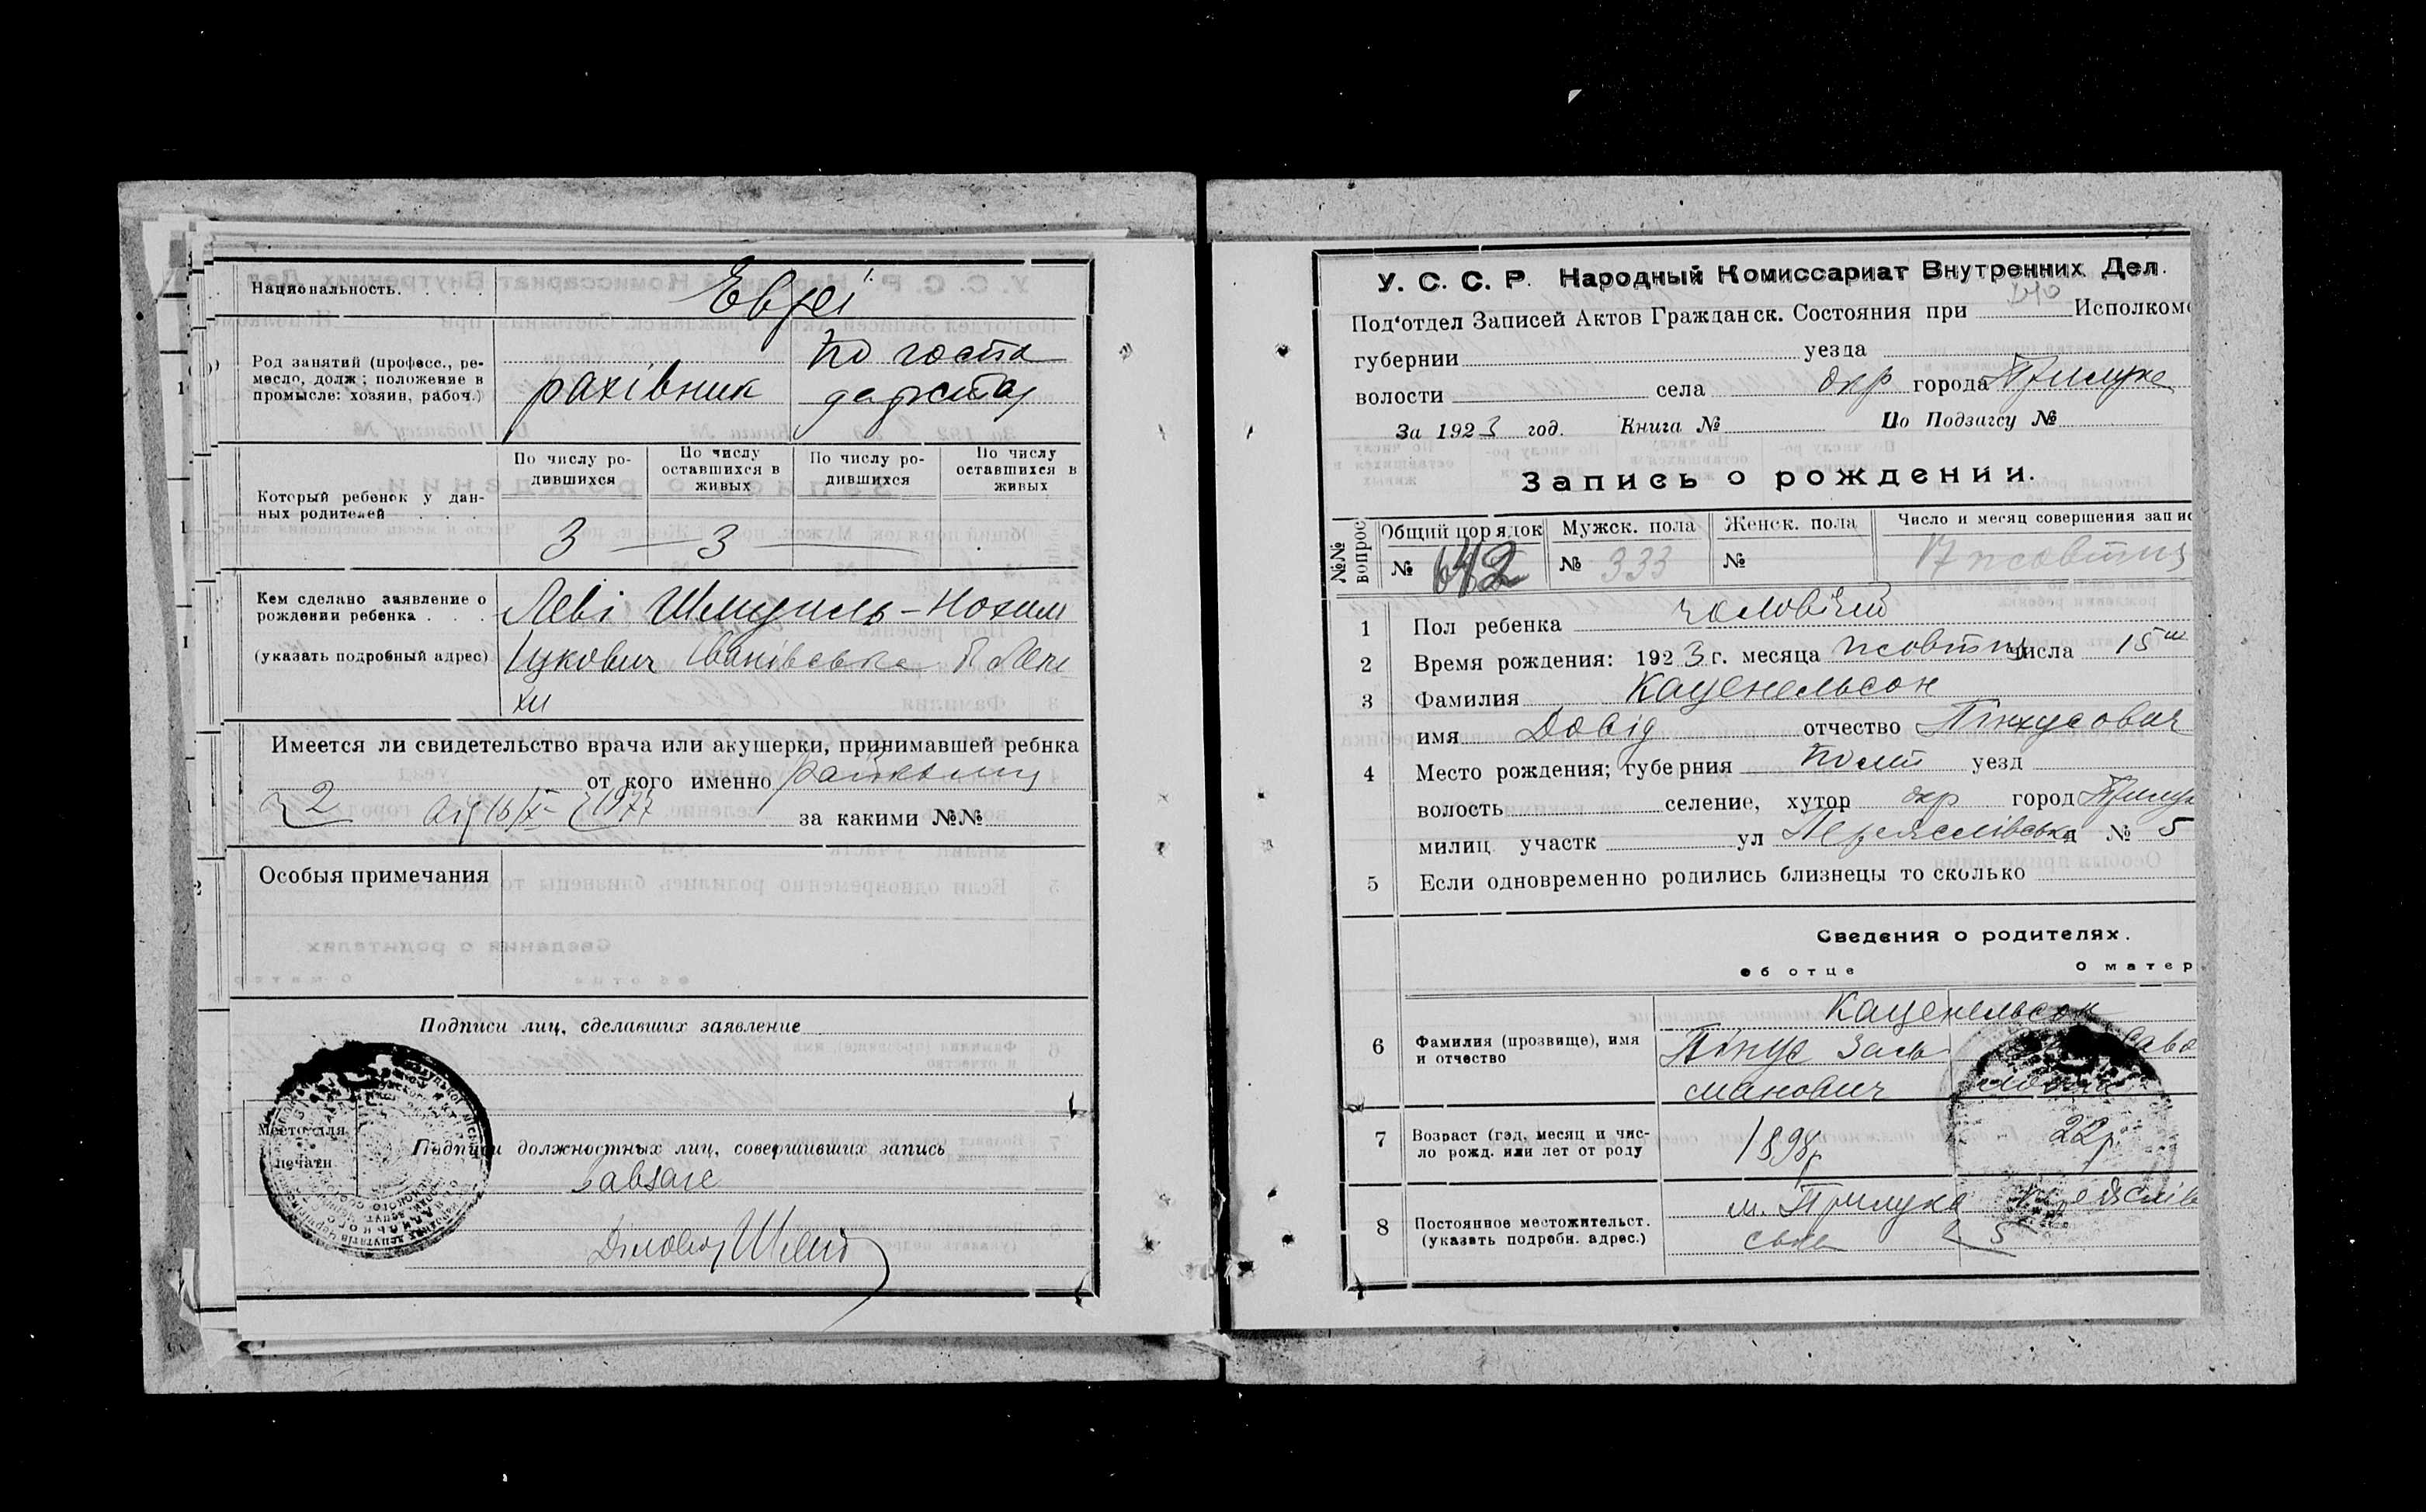 Национальность. . . . .
Евреї
Род занятий (професс., ре-
месло, долж; положение в
промысле: хозяин, рабоч.)
рахівник
по госпо
дарству
Который ребенок у дан-
ных родителей . . .
По числу ро-
дившихся
По числу
оставшихся в
живых
По числу ро-
дившихся
По числу
оставшихся в
живых
3 — 3
Кем сделано заявление о
рождении ребенка . . .
(указать подробный адрес)
Леві Шмуиль-Нохим
Іцкович Іванівська
Имеется ли свидетельство врача или акушерки, принимавшей ребнка
от кого именно
за какими №№
Особыя примечания
Подписи лиц, сделавших заявление
Место для
печати
Подписи должностных лиц, совершивших запись
Завзагс
Діловод
У. С. С. Р. Народный Комиссариат Внутренних Дел.
Под‘отдел Записей Актов Гражданск. Состояния при Исполкомо
губернии уезда
волости села окр города Прилуке
За 1923 год. Книга № По Подзагсу №
Запись о рождении.
№№
вопрос
Общий порядок
№ 642
Мужск. пола
№ 333
Женск. пола
№
Число и месяц совершения запис
17 жовтня
1 Пол ребенка чоловічий
2 Время рождения: 1923 г. месяца жовтня числа 15
3 Фамилия Каценельсон
имя Довід отчество Пінхусович
4 Место рождения; губерния Полт уезд
волость селение, хутор окр город Прилук
милиц. участк ул Переяслівська № 5
5 Если одновременно родились близнецы то сколько
Сведения о родителях.
об отце
О матер
6 Фамилия (прозвище), имя
и отчество
Каценельсон
Пінхус Заль
манович
7 Возраст (год, месяц и чис-
ло рожд. или лет от роду
1898р
22р
8 Постоянное местожительст.
(указать подробн. адрес.)
м. Прилука
ська 5